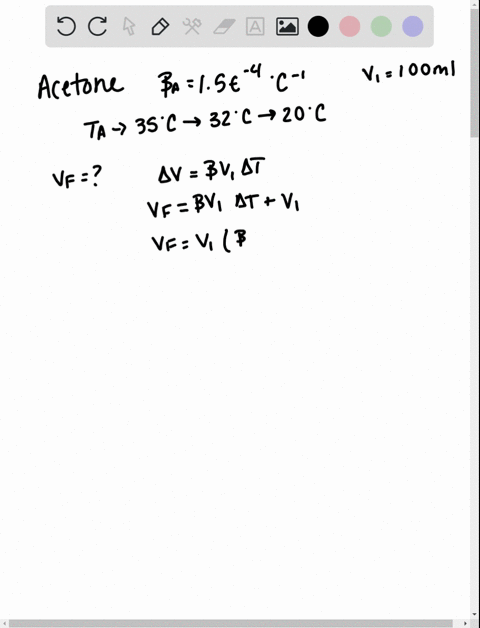 Acetone β_A = 1.5E^-4 °C^-1 V_1 = 100ml
T_A → 35°C → 32°C → 20°C
V_F = ? ΔV = βV_1 ΔT
V_F = βV_1 ΔT + V_1
V_F = V_1 (β